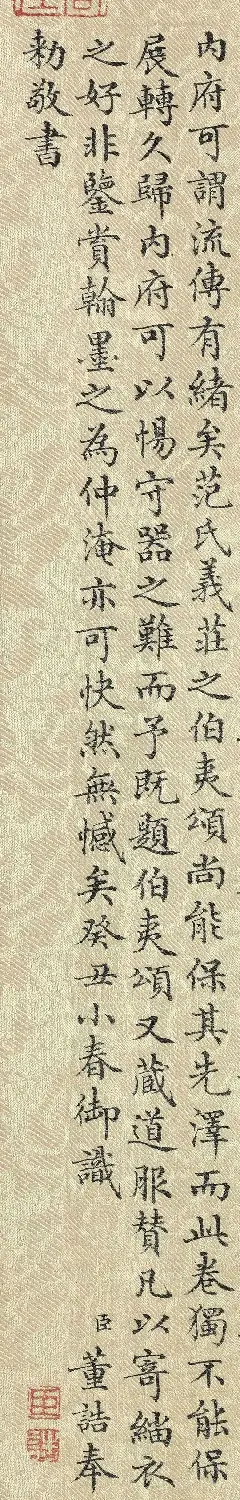 內府可謂流傳有緒矣范氏義莊之伯夷頌尚能保其先澤而此卷獨不能保
展轉久歸內府可以惕守器之難而予既題伯夷頌又蔵道服賛凡以寄緇衣
之好非鑒賞翰墨之為仲淹亦可快然無憾矣癸丑小春御識
臣董誥奉
勅敬書